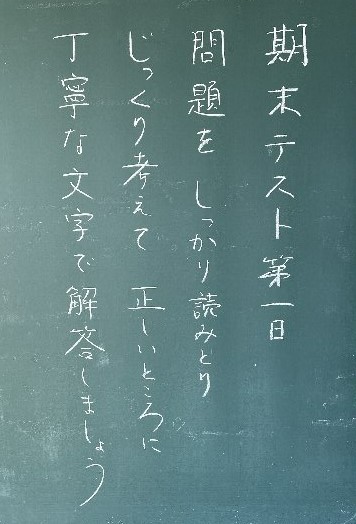 期末テスト第一日
問題を しっかり読みとり
じっくり考えて 正しいところに
丁寧な文字で解答しましょう